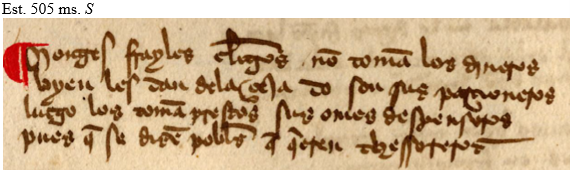 Est. 505 ms. S
Monges frayles cl̄igos nō tomā los dineros
byen les dan dela çeja do son sus parçioneros
luego los tomā prestos sus omēs despenseros
pues q̄ se dizē pobres q̄ q̄eren thessoreros